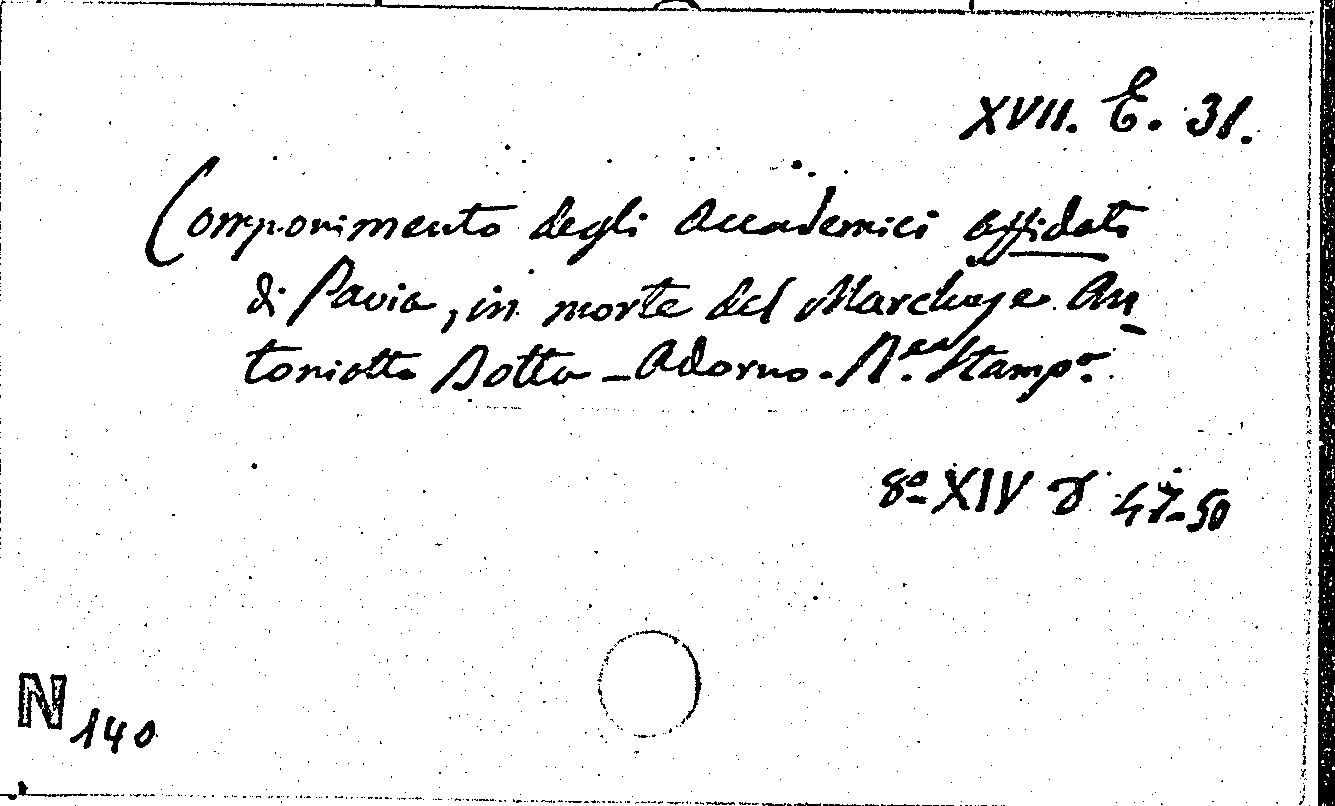 XVII. E. 31.
Componimento degli Accademici affidati
di Pavia, in morte del Marchese An
toniotto Botta - Adorno. R.ea Stamp.a
8º XIV D 47-50
N 140